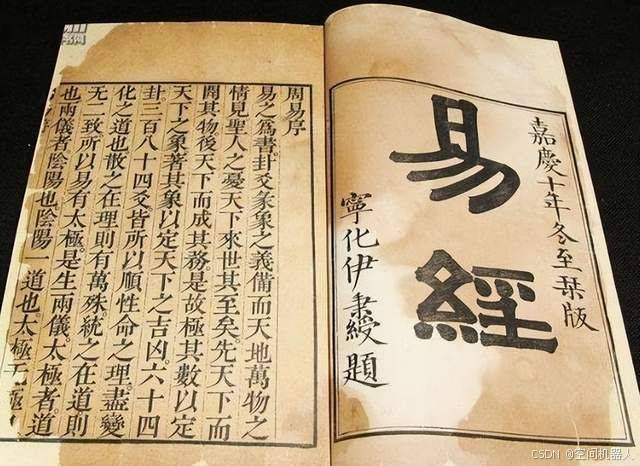 嘉慶十年冬至栞版
易經
寧化伊秉綬題
周易序
易之爲書卦爻彖象之義備而天地萬物之
情見聖人之憂天下來世其至矣。先天下而
開其物後天下而成其務。是故極其數以定
天下之象著其象以定天下之吉凶。六十四
卦三百八十四爻皆所以順性命之理。盡變
化之道也散之在理則有萬殊。統之在道則
无二致所以易有太極。是生兩儀。太極者。道
也兩儀者陰陽也陰陽一道也。太極无極
CSDN @空间机器人